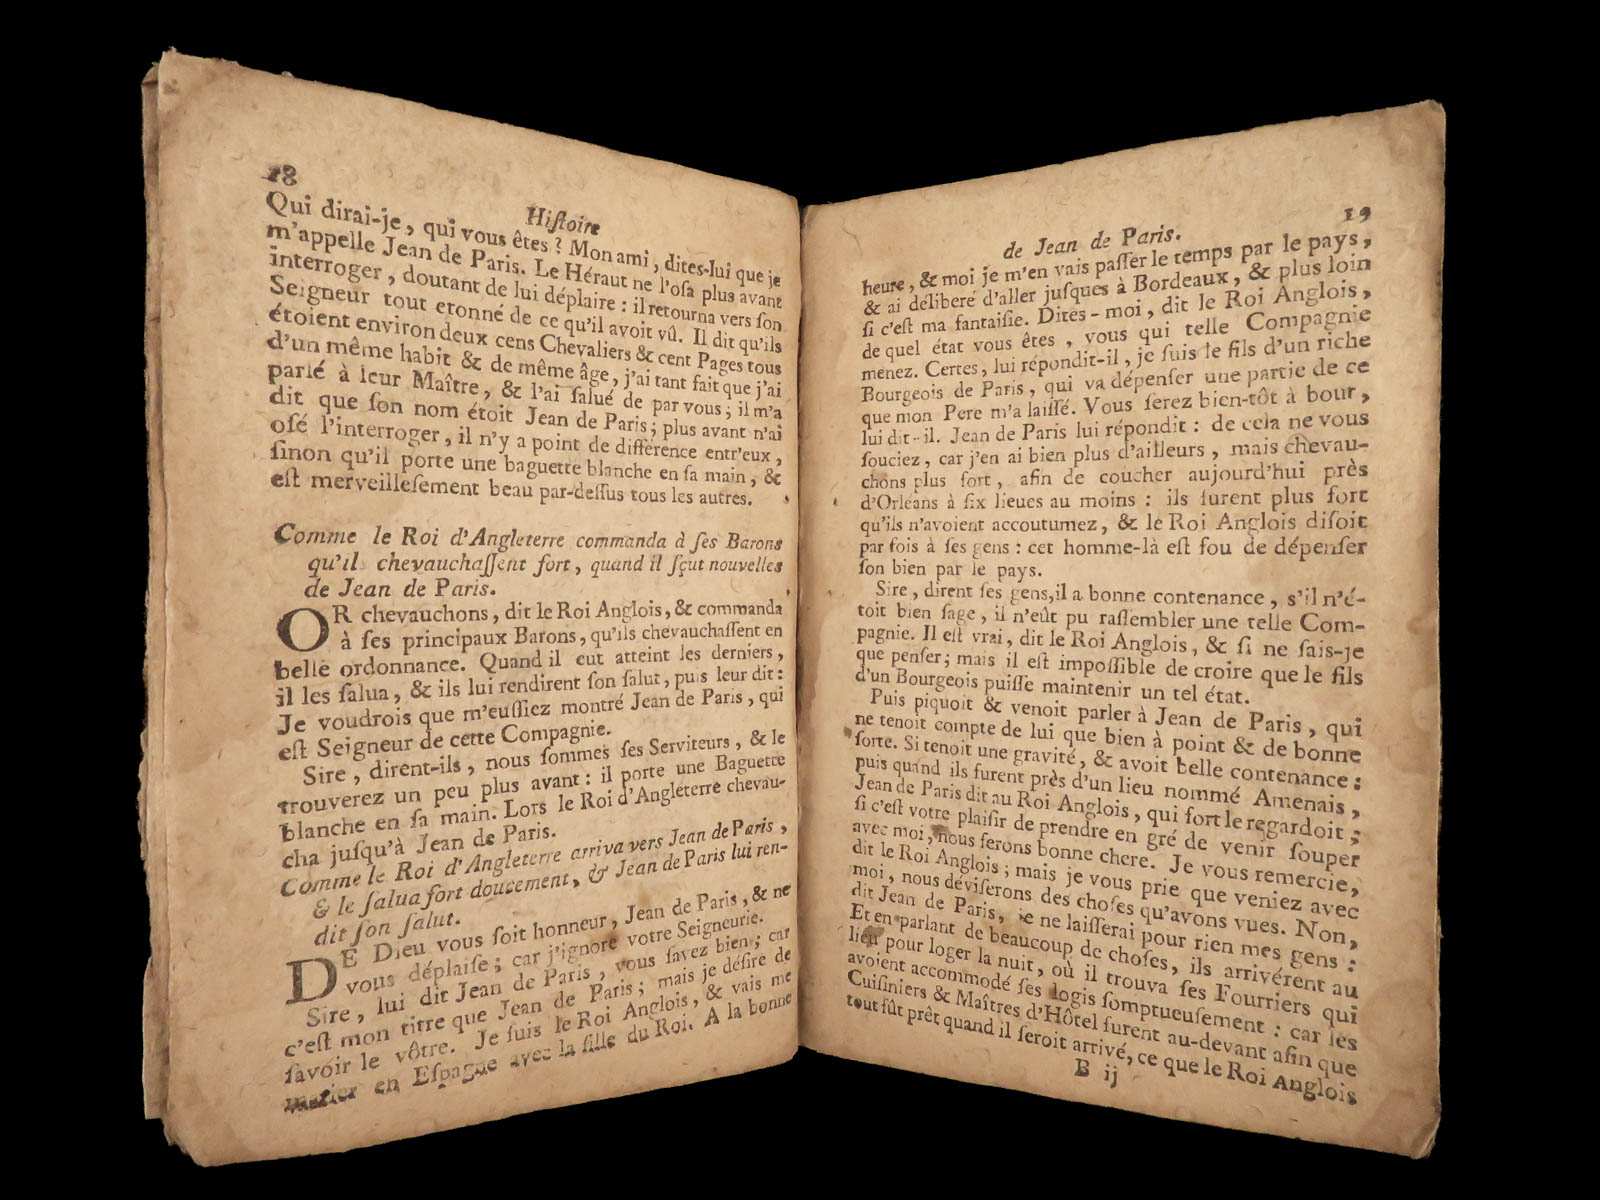 18
Histoire
Qui dirai-je, qui vous êtes? Mon ami, dites-lui que je
m'appelle Jean de Paris. Le Héraut ne l'oſa plus avant
interroger, doutant de lui déplaire : il retourna vers ſon
Seigneur tout etonné de ce qu'il avoit vû. Il dit qu'ils
étoient environ deux cens Chevaliers & cent Pages tous
d'un même habit & de même âge, j'ai tant fait que j'ai
parlé à leur Maître, & l'ai ſalué de par vous; il m'a
dit que ſon nom étoit Jean de Paris; plus avant n'ai
oſé l'interroger, il n'y a point de différence entr'eux,
ſinon qu'il porte une baguette blanche en ſa main, &
eſt merveilleſement beau par-deſſus tous les autres.
Comme le Roi d'Angleterre commanda à ſes Barons
qu'il chevauchaſſent fort, quand il ſçut nouvelles
de Jean de Paris.
OR chevauchons, dit le Roi Anglois, & commanda
à ſes principaux Barons, qu'ils chevauchaſſent en
belle ordonnance. Quand il eut atteint les derniers,
il les ſalua, & ils lui rendirent ſon ſalut, puis leur dit :
Je voudrois que m'euſſiez montré Jean de Paris, qui
eſt Seigneur de cette Compagnie.
Sire, dirent-ils, nous ſommes ſes Serviteurs, & le
trouverez un peu plus avant : il porte une Baguette
blanche en ſa main. Lors le Roi d'Angleterre chevau-
cha juſqu'à Jean de Paris.
Comme le Roi d'Angleterre arriva vers Jean de Paris,
& le ſalua fort doucement, & Jean de Paris lui ren-
dit ſon ſalut.
DE Dieu vous ſoit honneur, Jean de Paris, & ne
vous déplaiſe; car j'ignore votre Seigneurie.
Sire, lui dit Jean de Paris, vous ſavez bien; car
c'eſt mon titre que Jean de Paris; mais je déſire de
ſavoir le vôtre. Je ſuis le Roi Anglois, & vais me
marier en Eſpagne avec la fille du Roi. A la bonne
19
de Jean de Paris.
heure, & moi je m'en vais paſſer le temps par le pays,
& ai déliberé d'aller juſques à Bordeaux, & plus loin
ſi c'eſt ma fantaiſie. Dites-moi, dit le Roi Anglois,
de quel état vous êtes, vous qui telle Compagnie
menez. Certes, lui répondit-il, je ſuis le fils d'un riche
Bourgeois de Paris, qui va dépenſer une partie de ce
que mon Pere m'a laiſſé. Vous ſerez bien-tôt à bout,
lui dit-il. Jean de Paris lui répondit : de cela ne vous
ſouciez, car j'en ai bien plus d'ailleurs, mais chevau-
chons plus fort, afin de coucher aujourd'hui près
d'Orléans à ſix lieues au moins : ils furent plus fort
qu'ils n'avoient accoutumez, & le Roi Anglois diſoit
par fois à ſes gens : cet homme-là eſt fou de dépenſer
ſon bien par le pays.
Sire, dirent ſes gens, il a bonne contenance, s'il n'é-
toit bien ſage, il n'eût pu raſſembler une telle Com-
pagnie. Il eſt vrai, dit le Roi Anglois, & ſi ne ſais-je
que penſer; mais il eſt impoſſible de croire que le fils
d'un Bourgeois puiſſe maintenir un tel état.
Puis piquoit & venoit parler à Jean de Paris, qui
ne tenoit compte de lui que bien à point & de bonne
ſorte. Si tenoit une gravité, & avoit belle contenance :
puis quand ils furent près d'un lieu nommé Amenais,
Jean de Paris dit au Roi Anglois, qui fort le regardoit ;
ſi c'eſt votre plaiſir de prendre en gré de venir ſouper
avec moi, nous ferons bonne chere. Je vous remercie,
dit le Roi Anglois; mais je vous prie que veniez avec
moi, nous déviſerons des choſes qu'avons vues. Non,
dit Jean de Paris, je ne laiſſerai pour rien mes gens :
Et en parlant de beaucoup de choſes, ils arrivérent au
lieu pour loger la nuit, où il trouva ſes Fourriers qui
avoient accommodé ſes logis ſomptueuſement : car les
Cuiſiniers & Maîtres d'Hôtel furent au-devant afin que
tout fût prêt quand il ſeroit arrivé, ce que le Roi Anglois
B ij